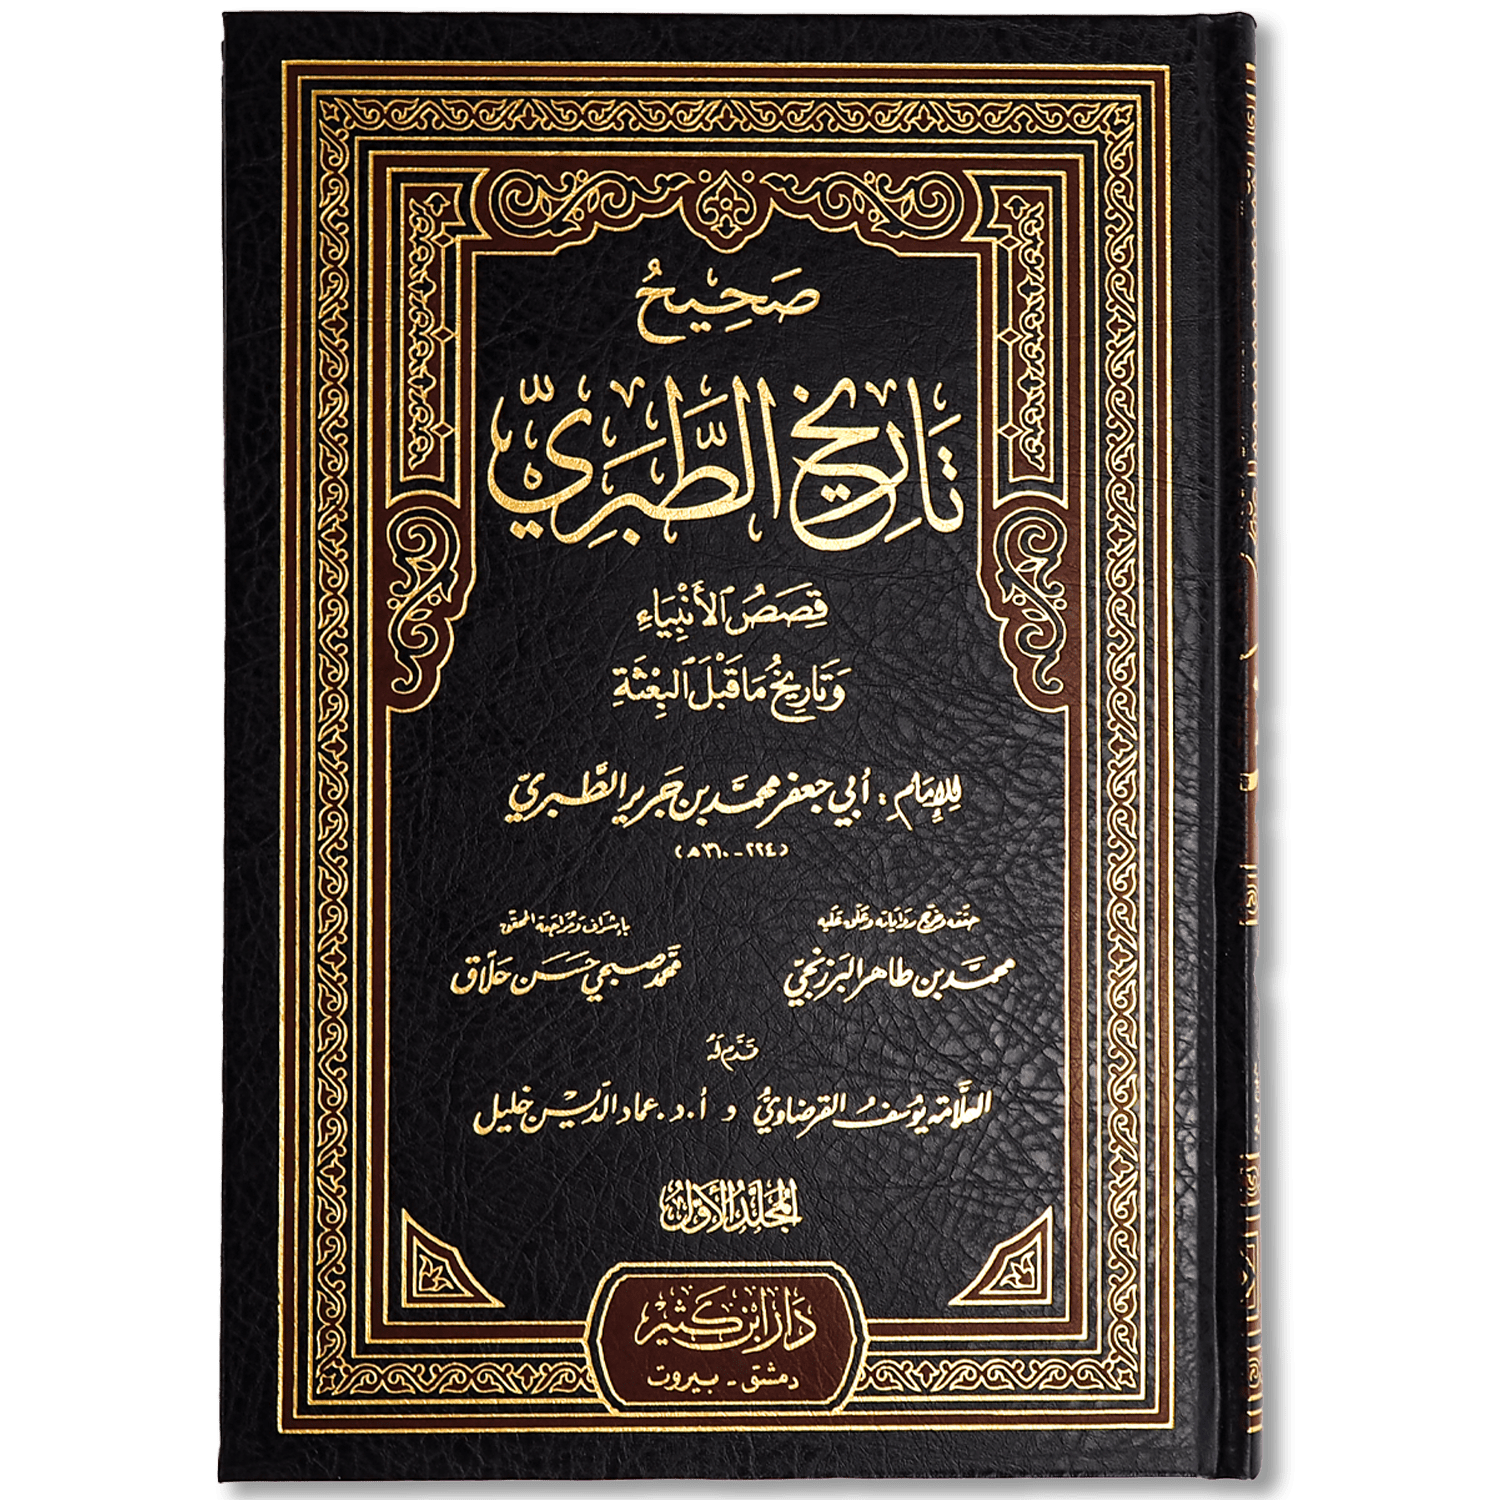 صَحِيحُ
تَارِيخِ الطَّبَرِيّ
قِصَصُ الأَنْبِيَاءِ
وَتَارِيخُ مَا قَبْلَ البِعْثَةِ
لِلإِمَامِ : أبي جعفر محمد بن جرير الطَّبري
(٢٢٤ - ٣١٠ هـ)
حققه وخرج رواياته وعلق عليه
محمد بن طاهر البرزنجي
بإشراف ومراجعة المحقق
محمد صبحي حسن حلاق
قدَّم له
العلامة يوسف القرضاوي و أ.د. عماد الدين خليل
المجلد الأول
دار ابن كثير
دمشق - بيروت